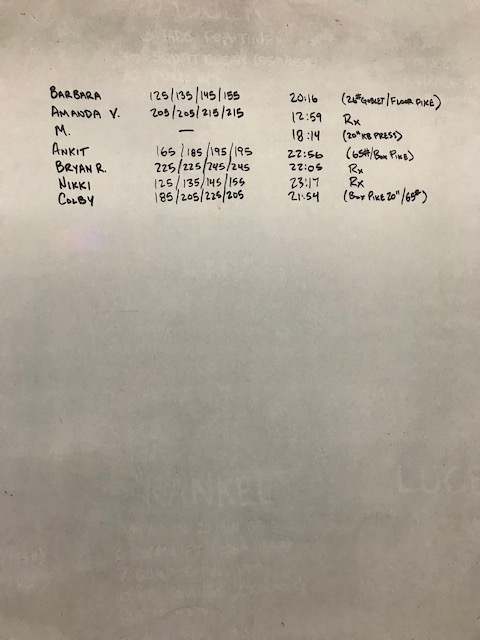 BARBARA 125/135/145/155 20:16 (26# GOBLET/FLOOR PIKE)
AMANDA V. 205/205/215/215 12:59 Rx
M. — 18:14 (20# KB PRESS)
ANKIT 165/185/195/195 22:56 (65#/BOX PIKE)
BRYAN R. 225/225/245/245 22:05 Rx
NIKKI 125/135/145/155 23:17 Rx
COLBY 185/205/225/205 21:54 (BOX PIKE 20"/65#)
RANKEL